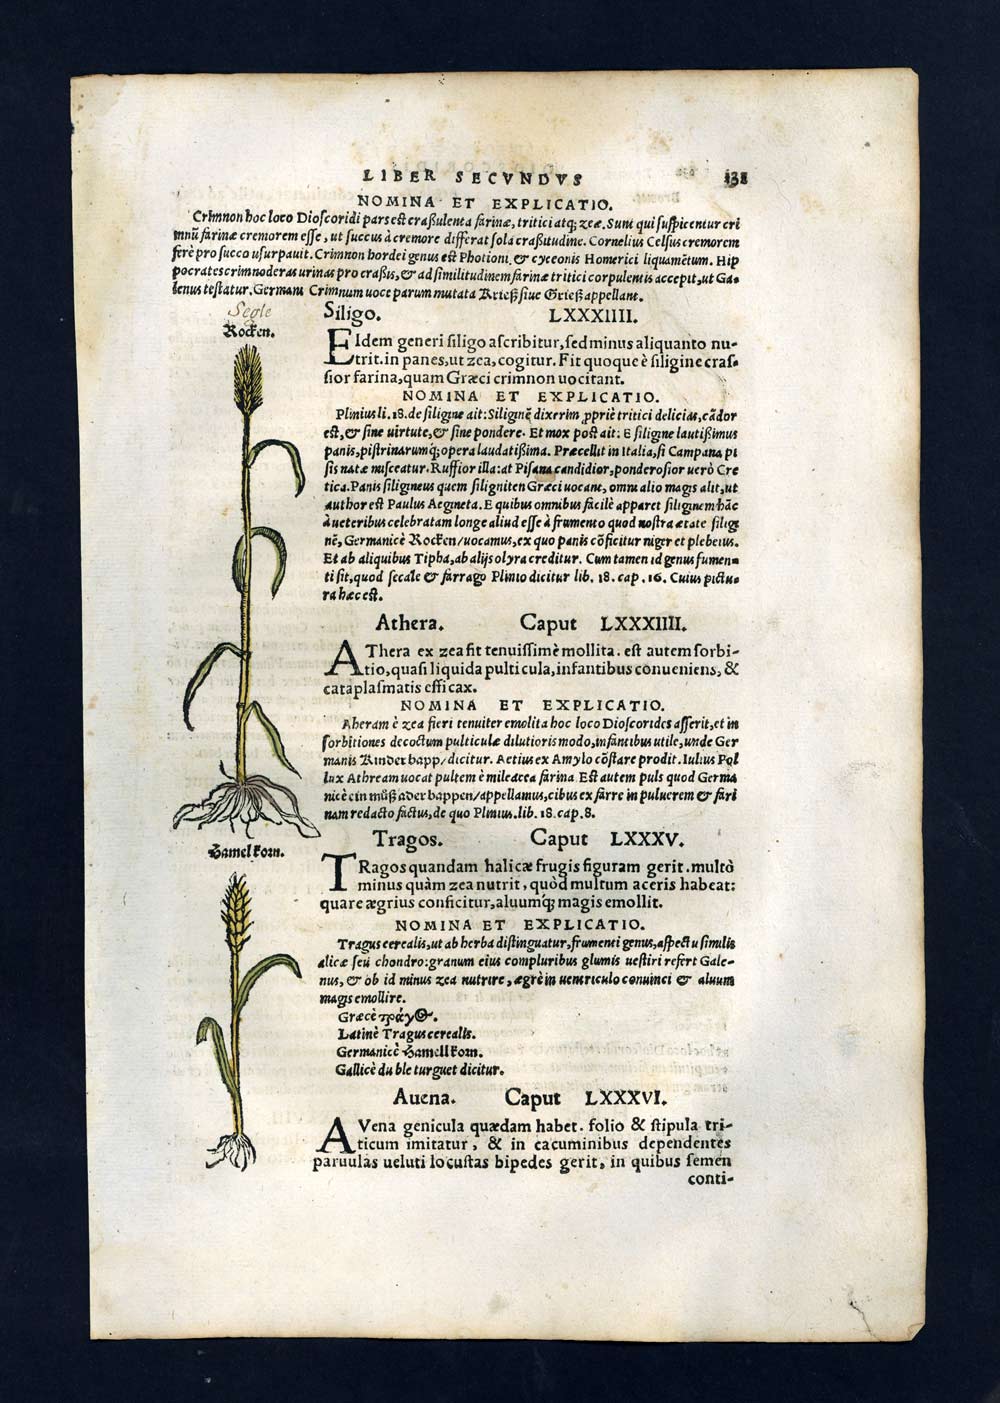 LIBER SECVNDVS 131
NOMINA ET EXPLICATIO.
Crimnon hoc loco Dioscoridi pars est craßulenta farinæ, tritici atq; zeæ. Sunt qui suspicentur cri
mnũ farinæ cremorem esse, ut succus à cremore differat sola craßitudine. Cornelius Celsus cremorem
ferè pro succo usurpauit. Crimnon hordei genus est Photioni, & cyceonis Homerici liquamẽtum. Hip
pocrates crimnoderas urinas pro craßis, & ad similitudinem farinæ tritici corpulentis accepit, ut Ga-
lenus testatur. Germani Crimnum uoce parum mutata Krieß siue Grieß appellant.
Segle
Rocken.
Siligo. LXXXIIII.
EIdem generi siligo ascribitur, sed minus aliquanto nu-
trit. in panes, ut zea, cogitur. Fit quoque è siligine cras-
sior farina, quam Græci crimnon uocitant.
NOMINA ET EXPLICATIO.
Plinius li. 18. de siligine ait: Siliginẽ dixerim ꝓpriè tritici delicias, cãdor
est, & sine uirtute, & sine pondere. Et mox post ait: E siligine lautißimus
panis, pistrinarumq; opera laudatißima. Præcellit in Italia, si Campana pi
sis natæ misceatur. Ruffior illa: at Pisana candidior, ponderosior uerò Cre
tica. Panis siligineus quem siligniten Græci uocant, omni alio magis alit, ut
author est Paulus Aegineta. E quibus omnibus facilè apparet siliginem hãc
à ueteribus celebratam longe aliud esse à frumento quod nostra ætate silig
nẽ, Germanicè Rocken/ uocamus, ex quo panis cõficitur niger et plebeius.
Et ab aliquibus Tipha, ab alijs olyra creditur. Cum tamen id genus fumen-
ti sit, quod secale & farrago Plinio dicitur lib. 18. cap. 16. Cuius pictu-
ra hæc est.
Athera. Caput LXXXIIII.
AThera ex zea fit tenuissimè mollita. est autem sorbi-
tio, quasi liquida pulticula, infantibus conueniens, &
cataplasmatis efficax.
NOMINA ET EXPLICATIO.
Aheram è zea fieri tenuiter emolita hoc loco Dioscorides asserit, et in
sorbitiones decoctum pulticulæ dilutioris modo, infantibus utile, unde Ger
manis Kinderbapp/ dicitur. Aetius ex Amylo cõstare prodit. Iulius Pol
lux Athream uocat pultem è mileacea farina. Est autem puls quod Germa
nicè ein můß ader bappen/ appellamus, cibus ex farre in puluerem & fari
nam redacto factus, de quo Plinius. lib. 18. cap. 8.
Hamelkorn.
Tragos. Caput LXXXV.
TRagos quandam halicæ frugis figuram gerit. multò
minus quàm zea nutrit, quòd multum aceris habeat:
quare ægrius conficitur, aluumq; magis emollit.
NOMINA ET EXPLICATIO.
Tragus cerealis, ut ab herba distinguatur, frumenti genus, aspectu similis
alicæ seu chondro: granum eius compluribus glumis uestiri refert Gale-
nus, & ob id minus zea nutrire, ægrè in uentriculo conuinci & aluum
magis emollire.
Græcè τράγος.
Latinè Tragus cerealis.
Germanicè Hamellkorn.
Gallicè du ble turguet dicitur.
Auena. Caput LXXXVI.
AVena genicula quædam habet. folio & stipula tri-
ticum imitatur, & in cacuminibus dependentes
paruulas ueluti locustas bipedes gerit, in quibus semen
conti-